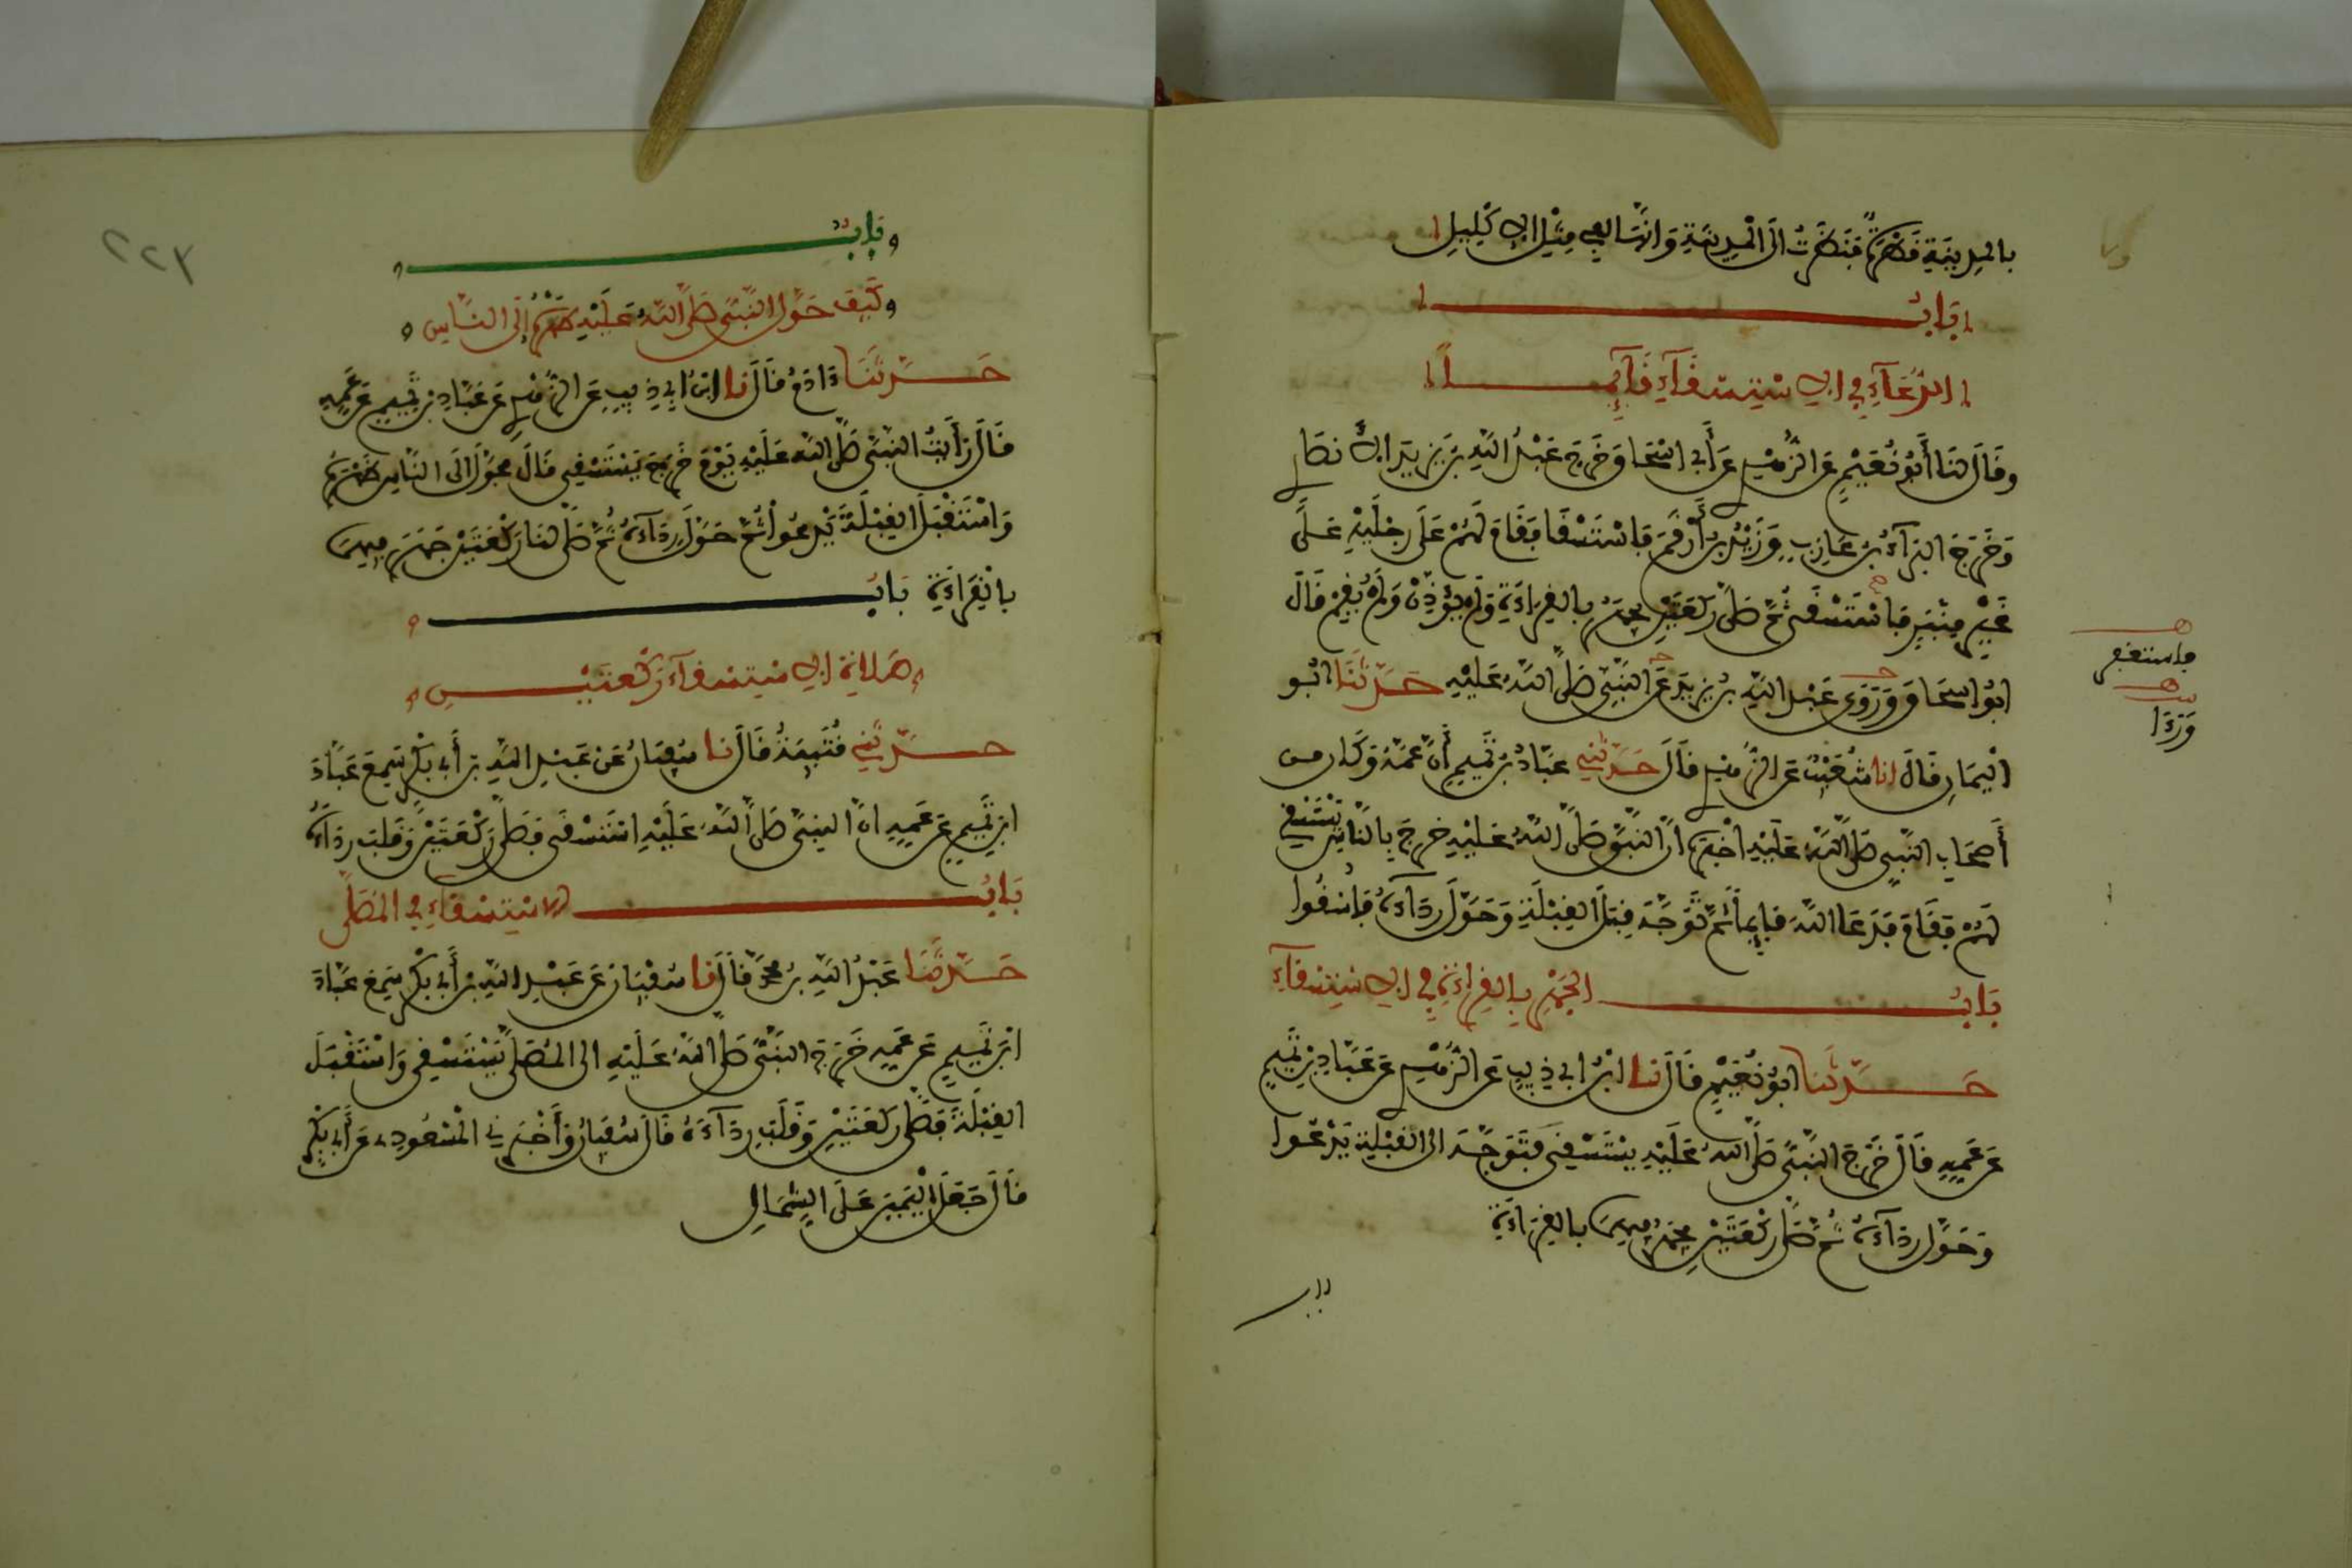 بالمدينة قطرة فنظرت الى المدينة وانها لفي مثل الاكليل
باب
الدعاء في الاستسقاء قائما
وقال لنا أبو نعيم عن الزهير عن أبي اسحاق خرج عبد الله بن يزيد الانصار
وخرج البراء بن عازب وزيد بن أرقم فاستسقا فقام لهم على رجليه على
غير منبر فاستسقى ثم صلى ركعتين يجهر بالقراءة ولم يؤذن ولم يقم قال
ابو اسحاق وروى عبد الله بن يزيد عن النبي صلى الله عليه حدثنا ابو
اليمان قال انا شعيب عن الزهري قال حدثني عباد بن تميم أن عمه وكان من
أصحاب النبي صلى الله عليه اخبره ان النبي صلى الله عليه خرج بالناس يستسقي
لهم فقام فدعا الله قايما ثم توجه قبل القبلة وحول رداءه فاسقوا
باب الجهر بالقراءة في الاستسقاء
حدثنا ابو نعيم قال نا ابن ابي ذيب عن الزهري عن عباد بن تميم
عن عمه قال خرج النبي صلى الله عليه يستسقي فتوجه الى القبلة يدعوا
وحول رداءه ثم صلى ركعتين يجهر فيهما بالقراءة
باب
فاستغفر
وردا
٢٢٣
باب
كيف حول النبي صلى الله عليه ظهره إلى الناس
حدثنا ءادم قال نا ابن ابي ذيب عن الزهري عن عباد بن تميم عن عمه
قال رأيت النبي صلى الله عليه يوم خرج يستسقي قال فحول الى الناس ظهره
واستقبل القبلة يدعوا ثم حول رداءه ثم صلى لنا ركعتين جهر فيهما
بالقراءة باب
صلاة الاستسقاء ركعتين
حدثني قتيبة قال نا سفيان عن عبد الله بن أبي بكر سمع عباد
ابن تميم عن عمه ان النبي صلى الله عليه استسقى فصلى ركعتين وقلب رداءه
باب الاستسقاء في المصلى
حدثنا عبد الله بن محمد قال نا سفيان عن عبد الله بن أبي بكر سمع عباد
ابن تميم عن عمه خرج النبي صلى الله عليه الى المصلى يستسقي واستقبل
القبلة فصلى ركعتين وقلب رداءه قال سفيان وأخبرني المسعودي عن أبي بكر
قال جعل اليمين على الشمال